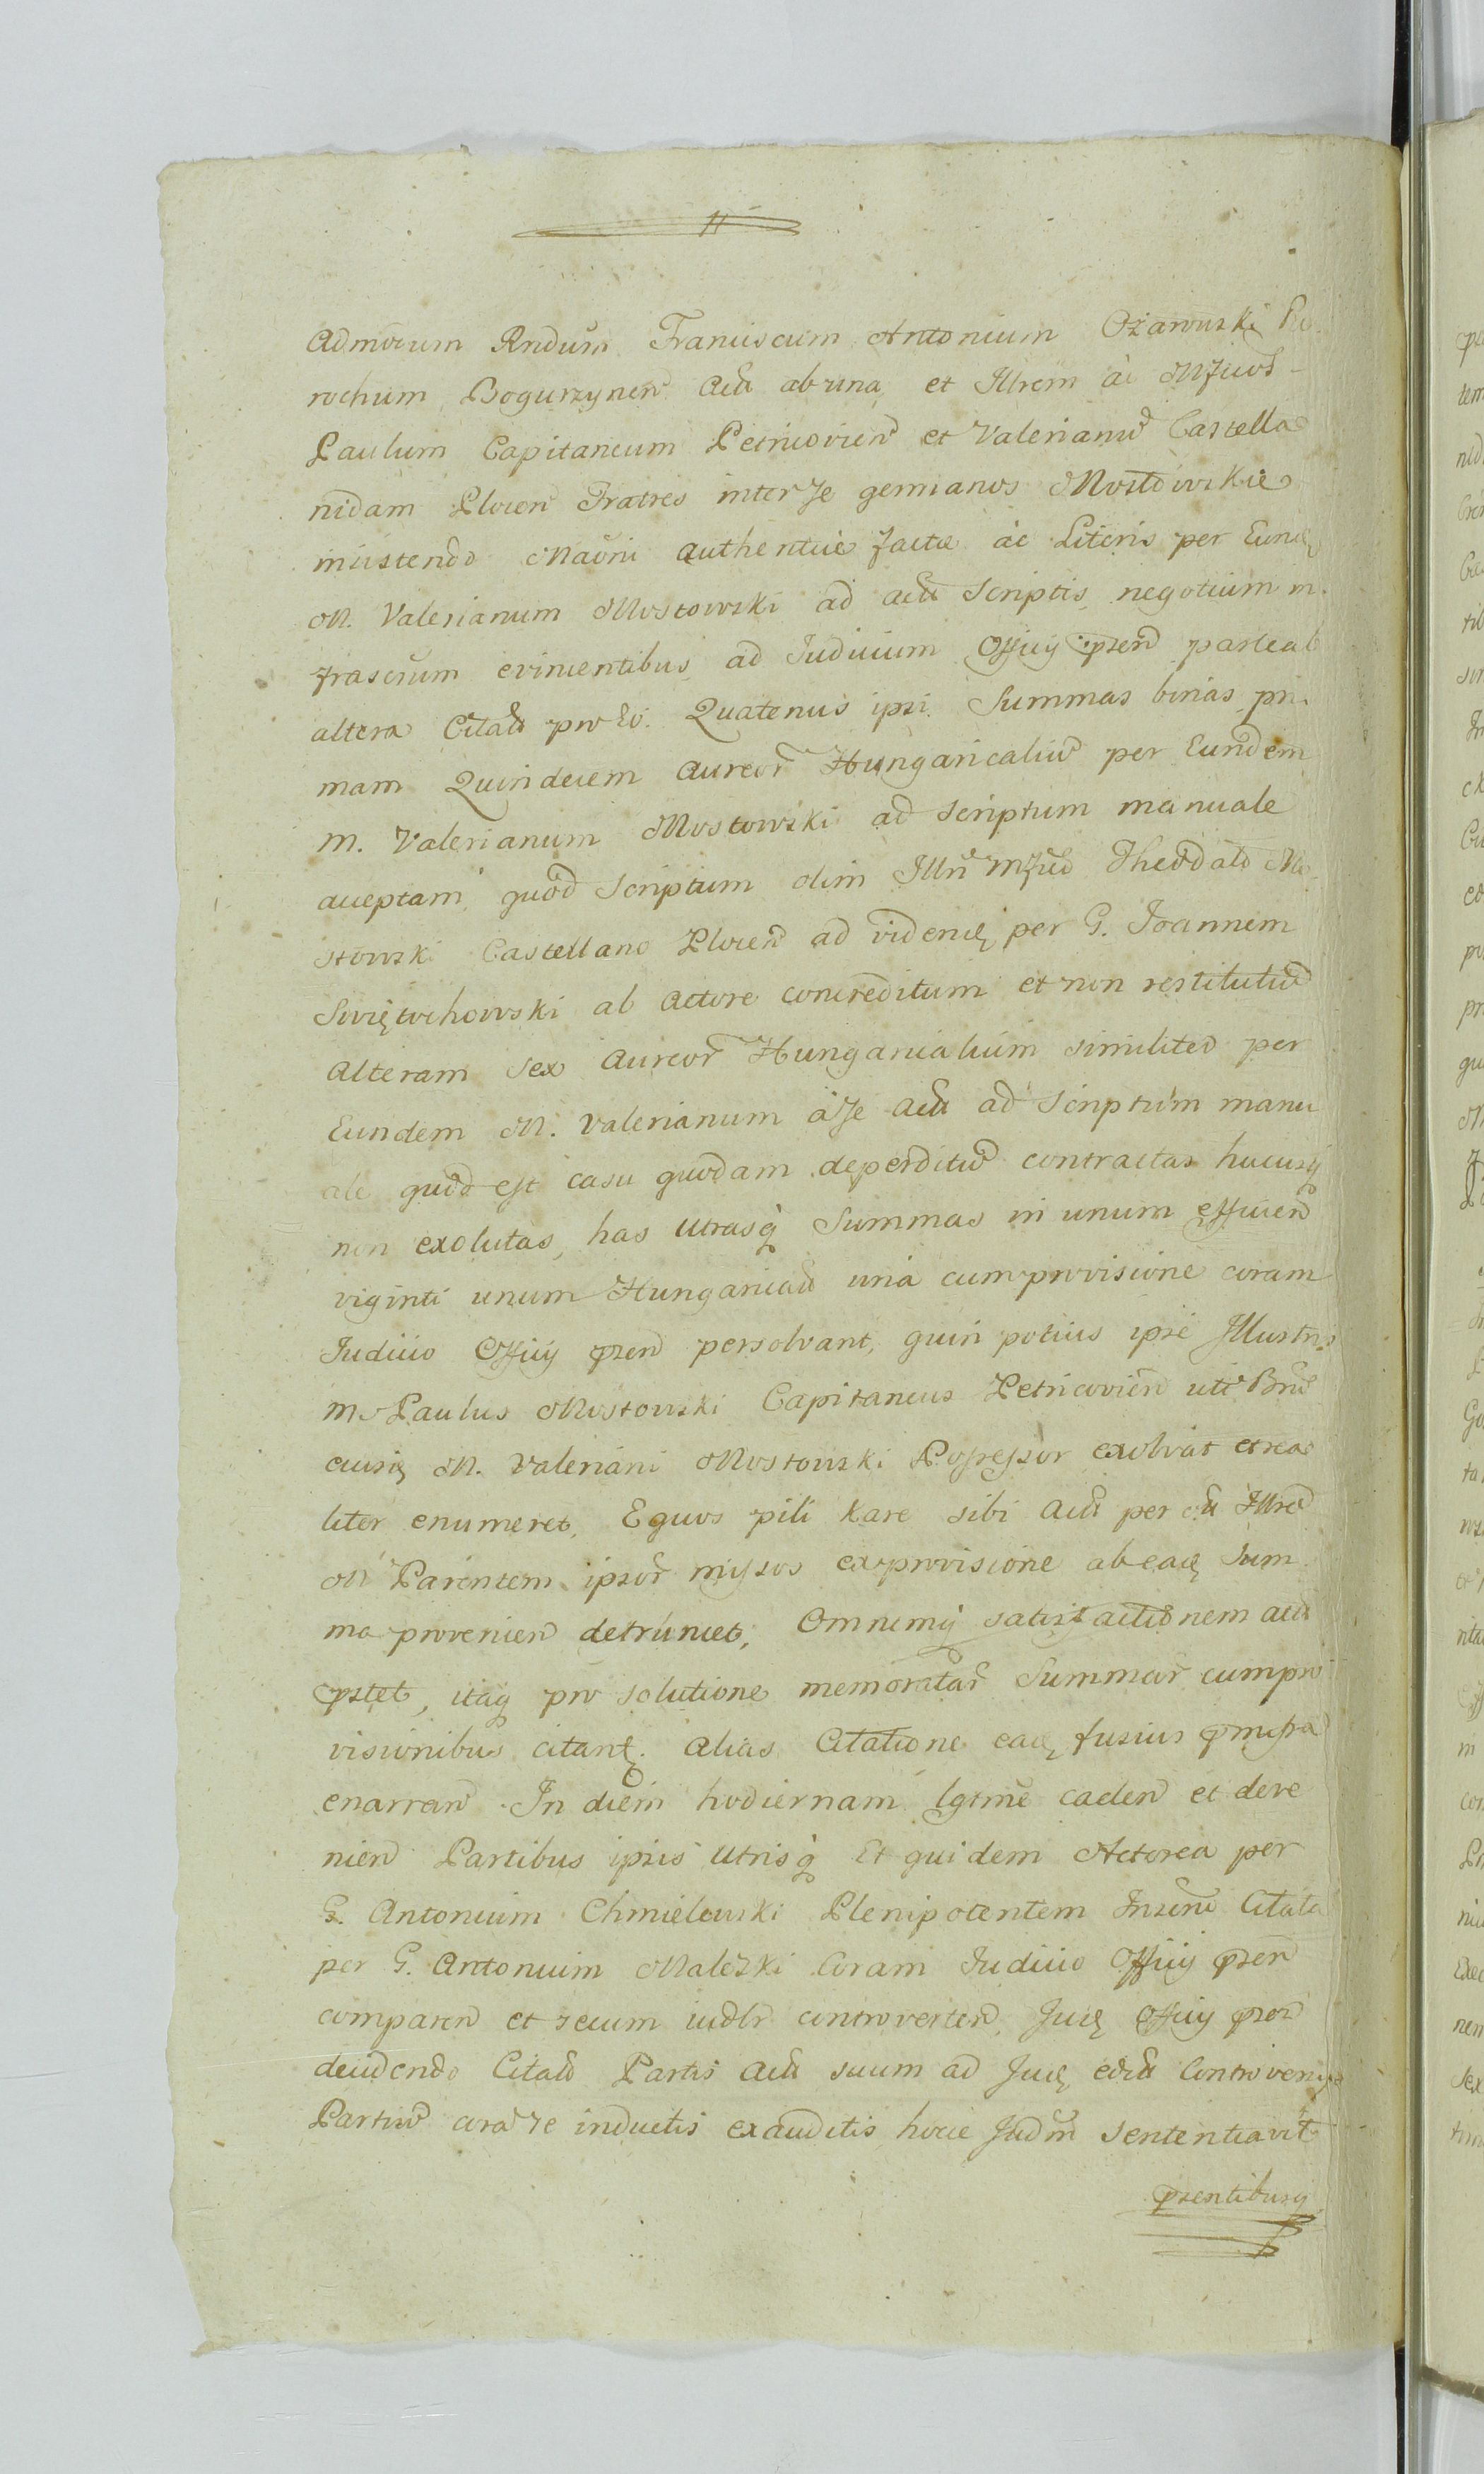 Admodum Rndum Franciscum Antonium Ożarowski Pa
rochum Bogurzynen Actu ab una et Illrem ac Mfcos
Paulum Capitaneum Petricovien et Valerianu Castella
nidam Plocen Fratres inter se germanos Mostowskie
insistendo Maõni authentice factæ ac Literis per Eund
M. Valerianum Mostowski ad actu Scriptis negotium in
frascrum evincentibus ad Judicium Officij psen parte ab
altera Citatu pro Eo. Quatenus ipsi Summas binas pri
mam Quindecem Aureor Hungaricaliu per Eundem
M. Valerianum Mostowski ad Scriptum manuale
acceptam quod Scriptum olim Illri Mfco Theodato Mo
stowski Castellano Plocen ad vidend per G. Joannem
Swiętochowski ab Actore concreditum et non restitutu
Alteram sex Aureor Hungaricalium similiter per
Eundem M. Valerianum a se actu ad Scriptum manu
ale quod est casu quodam deperditu contractas hucusq
non exolutas, has utrasq Summas in unum efficien
viginti unum Hungarical una cum provisione coram
Judicio Officij psen persolvant, quin potius ipse Illustris
M. Paulus Mostowski Capitaneus Petricovien uti Bnor
eiusd M. Valeriani Mostowski Possessor exolvat et rea
liter enumeret, Equos pili kare sibi Actu per olim Illrem
M Parentem ipsor missos ex provisione ab ead Sum
ma provenien detruncet, Omnemq satisfactionem actu
pstet, itaq pro solutione memoratar Summar cum pro
visionibus citant. Alias Citatione ead fusius pmissa
enarran. In diem hodiernam lgtme caden et deve
nien Partibus ipsis utrisq Et quidem Actorea per
G. Antonium Chmielewski Plenipotentem Citata
per G. Antonium Maleski Coram Judicio Officij psen
comparen et secum iudlr controverten, Jud Officij psen
decidendo Citatu Partis Actu suum ad Jud edu Controversijs
Partiu cora se inductis exauditis hocce Judm sententiavit
psentibusq